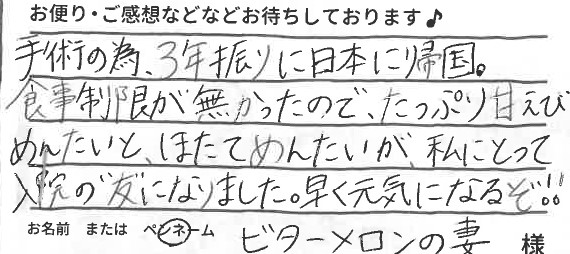 お便り・ご感想などなどお待ちしております♪
手術の為、3年振りに日本に帰国。
食事制限が無かったので、たっぷり甘えび
めんたいと、ほたてめんたいが、私にとって
入院の"友"になりました。早く元気になるぞ!!
お名前 または ペンネーム ビターメロンの妻 様